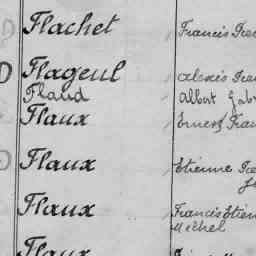 Flachet Francis
D Flageul Alexis
Flaud Albert
Flaux Ernest
D Flaux Etienne
Flaux Francis Etien
Michel
Flaux